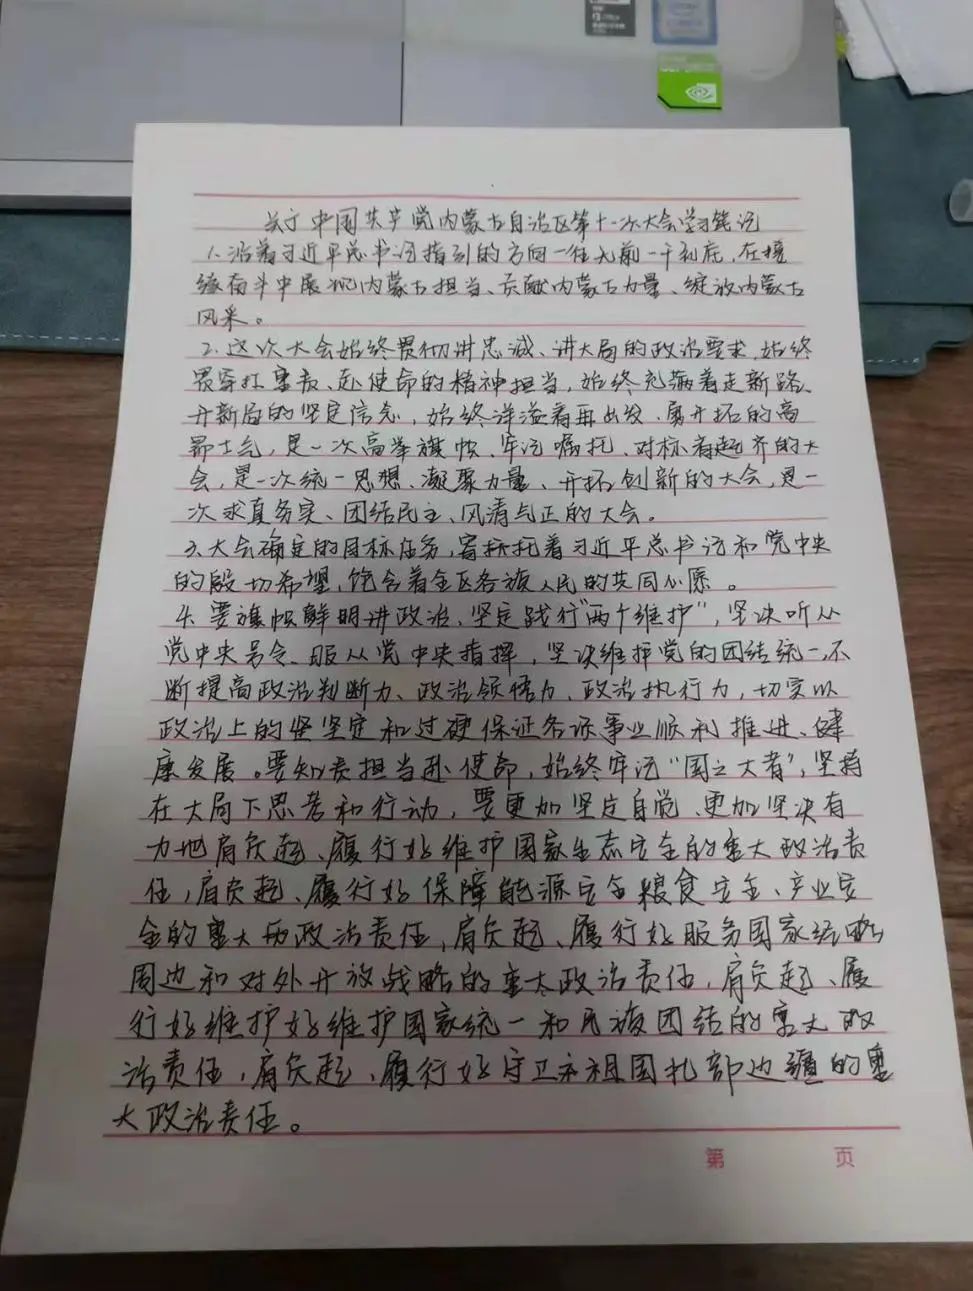 关于中国共产党内蒙古自治区第十一次大会学习笔记
1.沿着习近平总书记指引的方向一往无前一干到底,在接
续奋斗中展现内蒙古担当、贡献内蒙古力量、绽放内蒙古
风采。
2.这次大会始终贯彻讲忠诚、讲大局的政治要求,始终
贯穿扛重责、赴使命的精神担当,始终充满着走新路、
开新局的坚定信念,始终洋溢着再出发、勇开拓的高
昂士气,是一次高举旗帜、牢记嘱托、对标看齐的大
会,是一次统一思想、凝聚力量、开拓创新的大会,是一
次求真务实、团结民主、风清气正的大会。
3.大会确定的目标任务,寄托着习近平总书记和党中央
的殷切希望,饱含着全区各族人民的共同心愿。
4.要旗帜鲜明讲政治、坚定践行"两个维护",坚决听从
党中央号令、服从党中央指挥,坚决维护党的团结统一,不
断提高政治判断力、政治领悟力、政治执行力,切实以
政治上的坚定和过硬保证各项事业顺利推进、健
康发展。要知责担当赴使命,始终牢记"国之大者",坚持
在大局下思考和行动,要更加坚定自觉、更加坚决有
力地肩负起、履行好维护国家生态安全的重大政治责
任,肩负起、履行好保障能源安全粮食安全、产业安
全的重大政治责任,肩负起、履行好服务国家统略
周边和对外开放战略的重大政治责任,肩负起、履
行好维护好维护国家统一和民族团结的重大政
治责任,肩负起、履行好守卫祖国北部边疆的重
大政治责任。
第 页